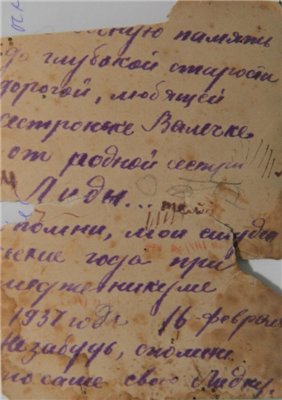 ную память
до глубокой старости
дорогой, любящей
сестроньке Валечке
от родной сестры
Лиды...
помни, мои студен
ческие года при
медтехникуме
1937 года 16 феврал
Незабудь, спомни
по саше свою Лидку.